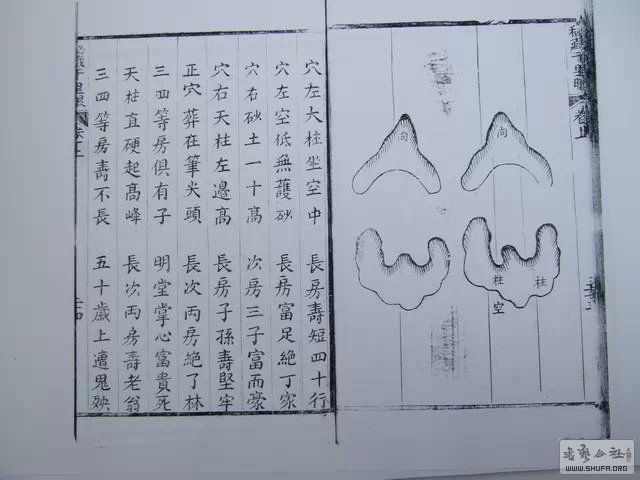 向
向
柱
柱
空
穴左大柱坐空中 長房壽短四十行
穴左空低無護砂 長房富足絶丁家
穴右砂土一十高 次房三子富而豪
穴右天柱左邉高 長房子孫壽堅牢
正穴葬在筆尖頭 長次丙房絶了林
三四等房俱有子 明堂掌心富貴死
天柱直硬起高峰 長次丙房壽老翁
三四等房壽不長 五十歲上遭鬼殃
書藝公社
WWW.SHUFA.ORG